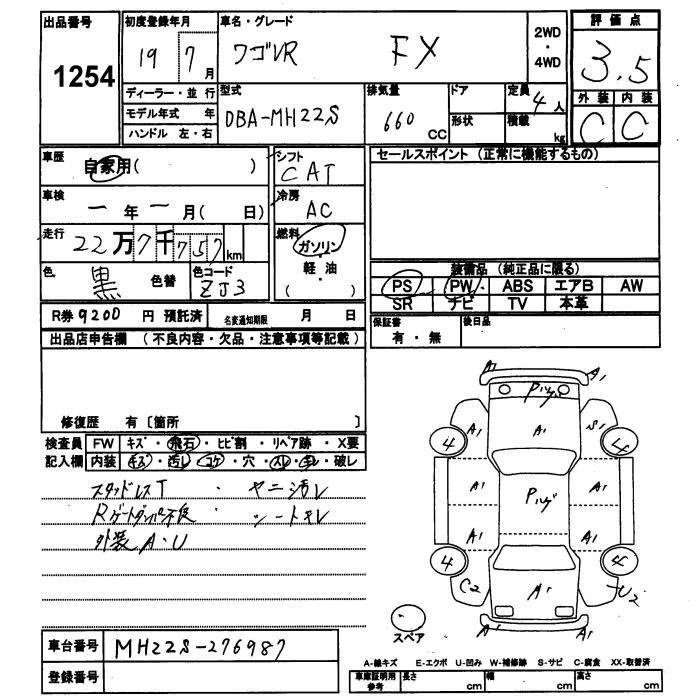 出品番号 初度登録年月 車名・グレード 評価点
1254 19 7 月 ワゴンR FX 2WD ・ 4WD 3.5
ディーラー・並行 型式 排気量 ドア 定員 4 人 外装 内装
モデル年式 年 DBA-MH22S 660 CC 形状 積載 kg C C
ハンドル 左・右
車歴 自家用( ) シフト CAT セールスポイント (正常に機能するもの)
車検 一 年 一 月( 日) 冷房 AC
走行 22万7千757km 燃料 ガソリン・軽・油 ( )
色 黒 色替 色コード ZJ3 装備品 (純正品に限る)
PS PW ABS エアB AW
SR ナビ TV 本革
R券 9200 円 預託済 名変通知期限 月 日 保証書 有・無 後日品
出品店申告欄 (不良内容・欠品・注意事項等記載)
修復歴 有 〔箇所 〕
検査員 FW キズ・飛石・ヒビ割・リペア跡・X要
記入欄 内装 キズ・汚レ・コゲ・穴・スレ・キレ・破レ
スタッドレスT ・ ヤニ汚レ
Rゲートダンパ不良 ・ シートキレ
外装 A・U
A1 A1
Pルゲ
A1 A1 S1
4 4
A1 Pルゲ A1
A1 A1
4 4
C2 A1 U2
A1 A1
スペア
車台番号 MH22S-276987
A-線キズ E-エクボ U-凹み W-補修跡 S-サビ C-腐食 XX-取替済
登録番号 車庫証明用参考 長さ cm 幅 cm 高さ cm